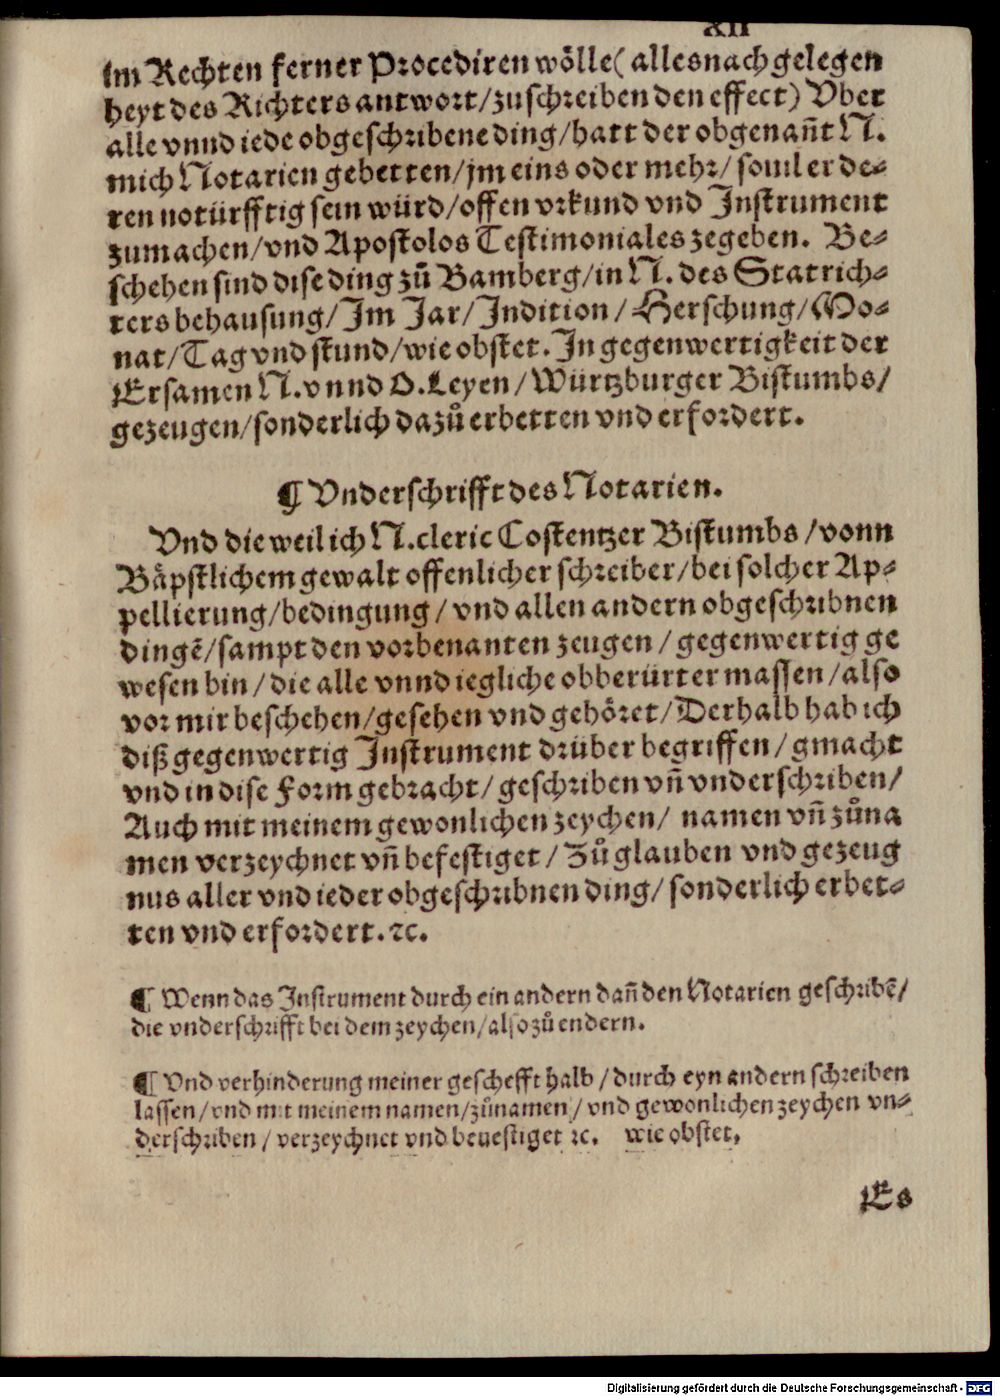 XII
im Rechten ferner Procediren wölle( alles nach gelegen
heyt des Richters antwort/zuschreiben den effect) Vber
alle vnnd iede obgeschribene ding/hatt der obgenañt N.
mich Notarien gebetten/jm eins oder mehr/souil er de⸗
ren notürfftig sein würd/offen vrkund vnd Instrument
zumachen/vnd Apostolos Testimoniales zegeben. Be⸗
schehen sind dise ding zů Bamberg/in N. des Statrich⸗
ters behausung/Im Jar/Indition/Herschung/Mo⸗
nat/Tag vnd stund/wie obstet. In gegenwertigkeit der
Ersamen N. vnnd O. Leyen/Würtzburger Bistumbs/
gezeugen/sonderlich dazů erbetten vnd erfordert.
¶ Vnderschrifft des Notarien.
Vnd die weil ich N. cleric Costentzer Bistumbs/vonn
Bäpstlichem gewalt offenlicher schreiber/bei solcher Ap⸗
pellierung/bedingung/vnd allen andern obgeschribnen
dingẽ/sampt den vorbenanten zeugen/gegenwertig ge
wesen bin/die alle vnnd iegliche obberürter massen/also
vor mir beschehen/gesehen vnd gehöret/Derhalb hab ich
diß gegenwertig Instrument drüber begriffen/gmacht
vnd in dise Form gebracht/geschriben vñ vnderschriben/
Auch mit meinem gewonlichen zeychen/ namen vñ zůna
men verzeychnet vñ befestiget/Zů glauben vnd gezeug
nus aller vnd ieder obgeschribnen ding/sonderlich erbet⸗
ten vnd erfordert. ꝛc.
¶ Wenn das Instrument durch ein andern dañ den Notarien geschribẽ/
die vnderschrifft bei dem zeychen/also zů endern.
¶ Vnd verhinderung meiner geschefft halb/durch eyn andern schreiben
lassen/vnd mit meinem namen/zůnamen/vnd gewonlichen zeychen vn⸗
derschriben/verzeychnet vnd beuestiget ꝛc. wie obstet.
Es
Digitalisierung gefördert durch die Deutsche Forschungsgemeinschaft - DFG